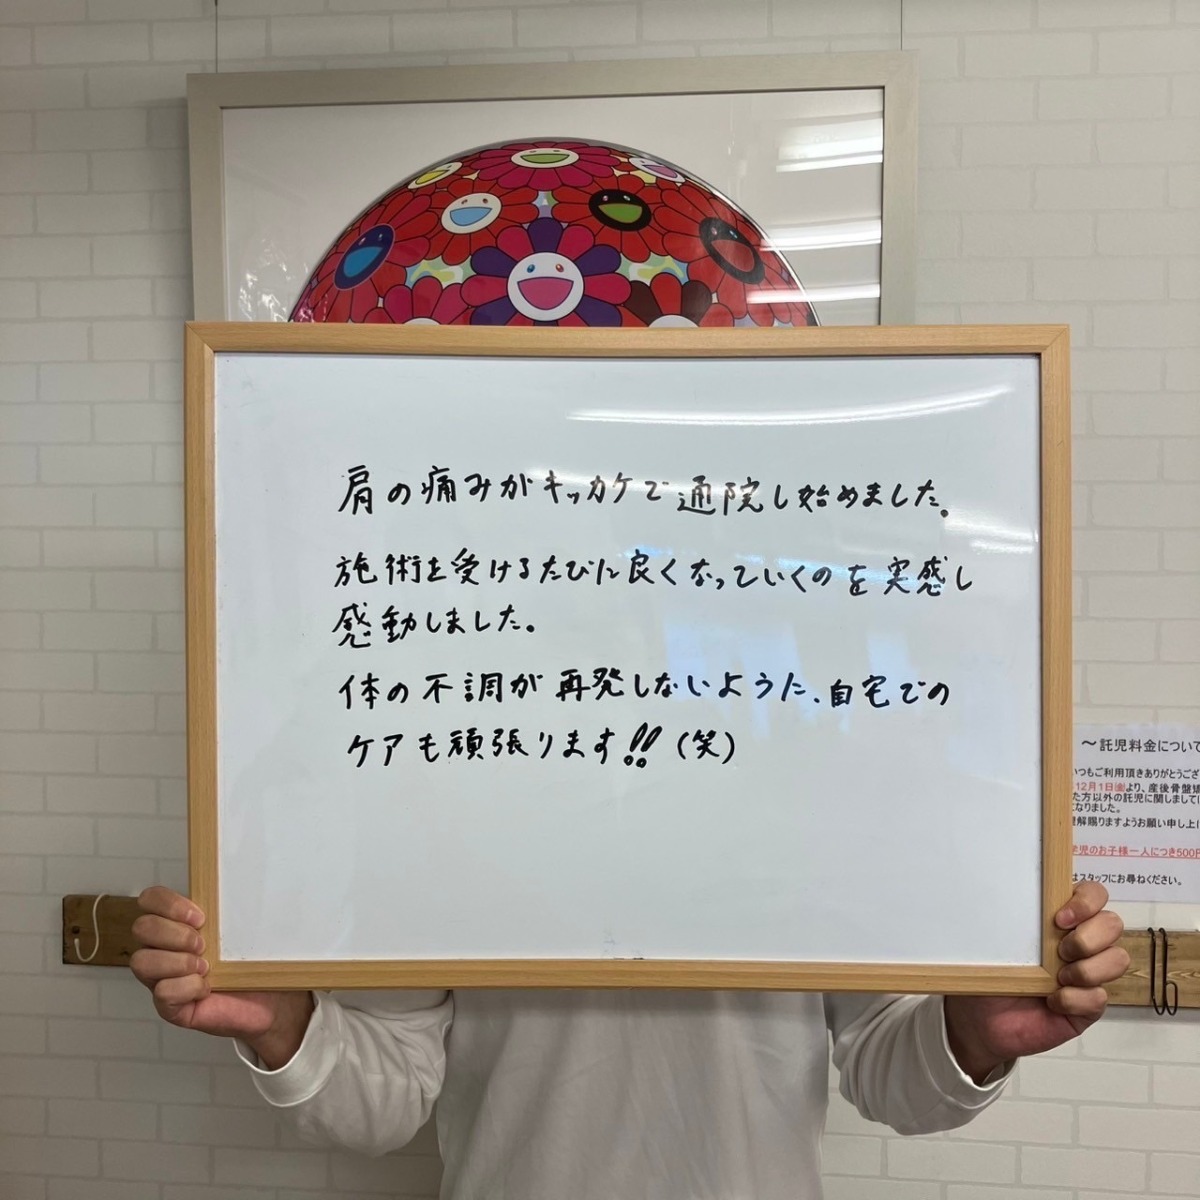 肩の痛みがキッカケで通院し始めました。
施術を受けるたびに良くなっていくのを実感し
感動しました。
体の不調が再発しないように、自宅での
ケアも頑張ります!!(笑)
～託児料金について
いつもご利用頂きありがとうござ
12月1日(金)より、産後骨盤矯
た方以外の託児に関しまして
になりました。
理解賜りますようお願い申し上げ
学児のお子様一人につき500円
はスタッフにお尋ねください。